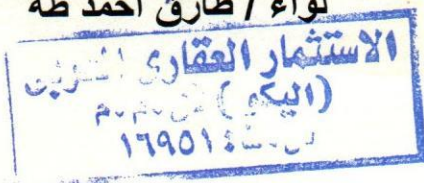 لواء / طارق احمد طه
الاستثمار العقارى
(اليكو) ش.م.م
١٦٩٥١٤